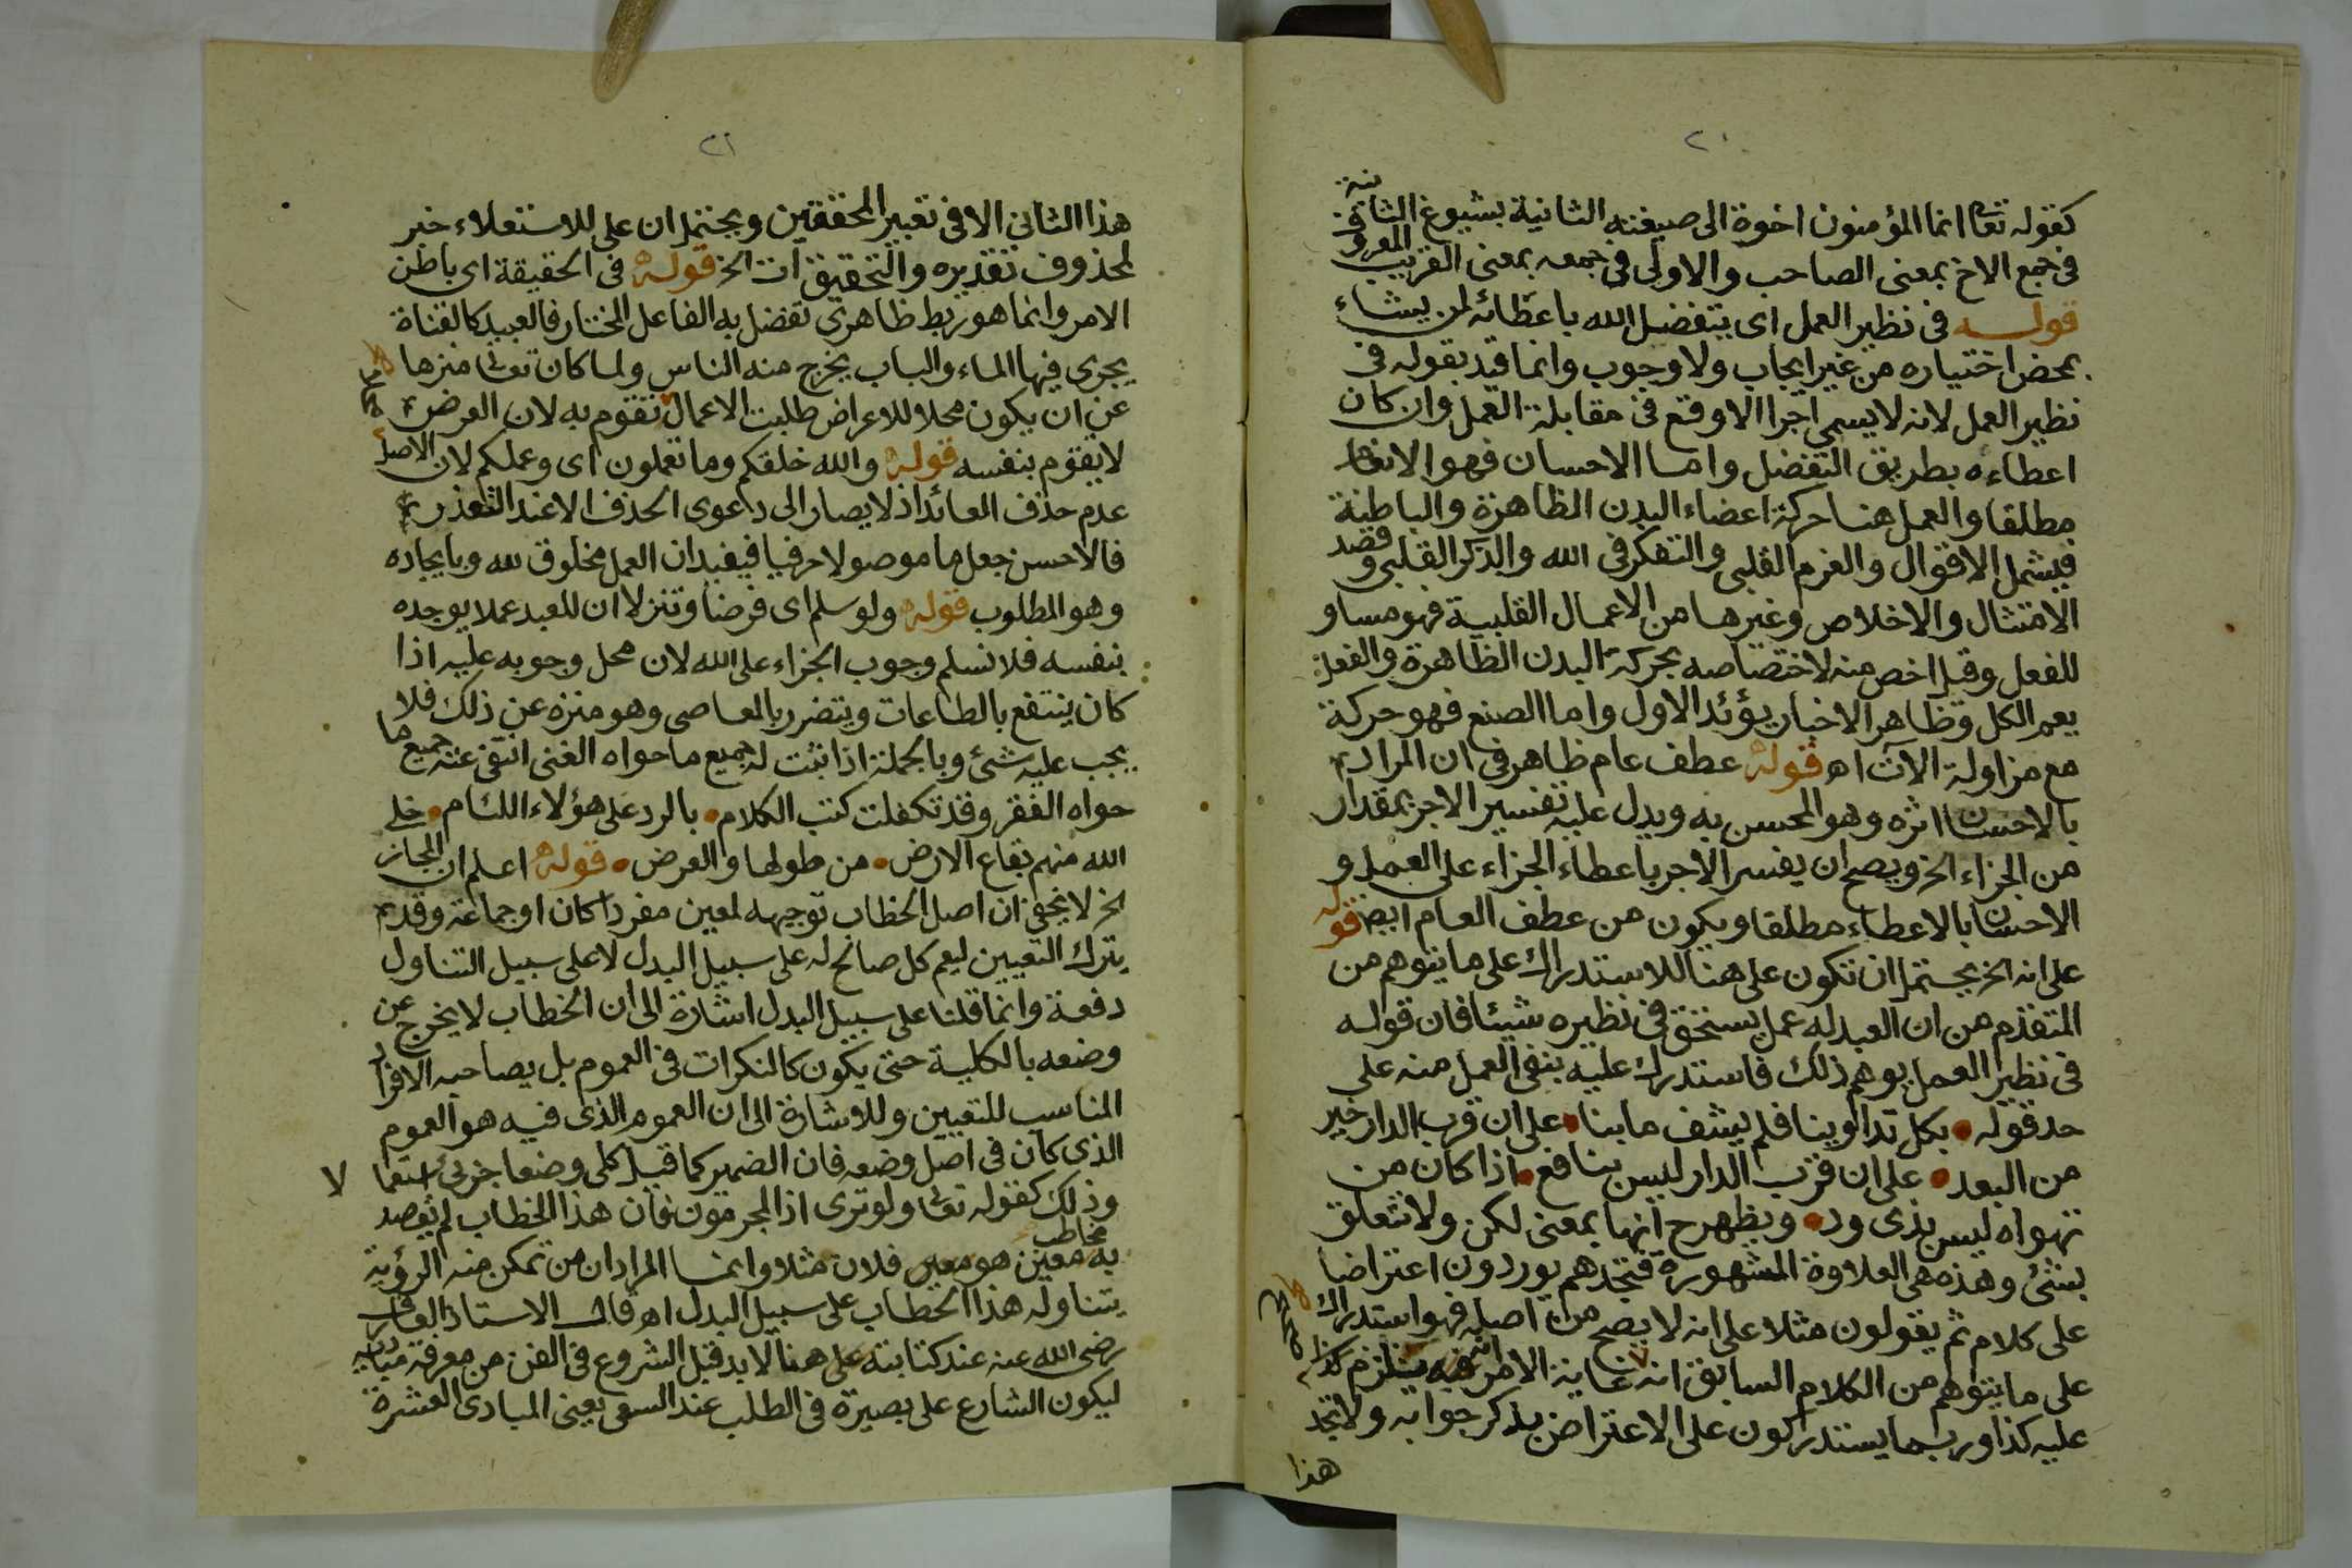 ٢٠
كقوله تعا انما المؤمنون اخوة الى صيغته الثانية بشيوع الثانية
فى جمع الاخ بمعنى الصاحب والاولى فى جمعه بمعنى القريب المعروف
قوله فى نظير العمل اى يتفضل الله باعطائه لمن يشاء
بمحض اختياره من غير ايجاب ولا وجوب وانما قيد بقوله فى
نظير العمل لانه لا يسمى اجرا الا وقع فى مقابلة العمل وان كان
اعطاءه بطريق التفضل واما الاحسان فهو الانعام
مطلقا والعمل هنا حركة اعضاء البدن الظاهرة والباطنة
فيشمل الاقوال والعزم القلبى والتفكر فى الله والذكر القلبى وقصد
الامتثال والاخلاص وغيرها من الاعمال القلبية فهو مساو
للفعل وقيل اخص منه لاختصاصه بحركة البدن الظاهرة والفعل
يعم الكل وظاهر الاخبار يؤئد الاول واما الصنع فهو حركة
مع مزاولة الآت اه قوله عطف عام ظاهر فى ان المراد
بالاحسان اثره وهو المحسن به ويدل عليه تفسير الاجر بمقدار
من الجزاء الخ ويصح ان يفسر الاجر باعطاء الجزاء على العمل و
الاحسان بالاعطاء مطلقا ويكون من عطف العام ايض قوله
على انه الخ يحتمل ان تكون على هنا للاستدراك على ما يتوهم من
المتقدم من ان العبد له عمل يستحق فى نظيره شيئا فان قوله
فى نظير العمل يوهم ذلك فاستدرك عليه بنفى العمل منه على
حد قوله • بكل تداوينا فلم يشف ما بنا • على ان قرب الدار خير
من البعد • على ان قرب الدار ليس بنافع • اذا كان من
تهواه ليس بذى ود • ويظهر ح انها بمعنى لكن ولا تتعلق
بشئ وهذه هى العلاوة المشهورة فتجدهم يوردون اعتراضا
على كلام ثم يقولون مثلا على انه لا يصح من اصله فهو استدراك
على ما يتوهم من الكلام السابق انه غاية الامر انه يلزم كذا
عليه كذا وربما يستدركون على الاعتراض بذكر جوابه ولا تجد
هذا
٢١
هذا الثانى الا فى تعبير المحققين ويحتمل ان على للاستعلاء خبر
لمحذوف تقديره والتحقيق ات الخ قوله فى الحقيقة اى باطن
الامر وانما هو ربط ظاهرى تفضل به الفاعل المختار فالعبيد كالقناة
يجرى فيها الماء والباب يخرج منه الناس ولما كان تعالى منزها
عن ان يكون محلا للاعراض طلبت الاعمال تقوم به لان العرض
لا يقوم بنفسه قوله والله خلقكم وما تعملون اى وعملكم لان الاصل
عدم حذف العائد اذ لا يصار الى دعوى الحذف الا عند التعذر
فالاحسن جعل ما موصولا حرفيا فيفيد ان العمل مخلوق لله وبايجاده
وهو المطلوب قوله ولو سلم اى فرضا وتنزلا ان للعبد عملا يوجده
بنفسه فلا نسلم وجوب الجزاء على الله لان محل وجوبه عليه اذا
كان ينتفع بالطاعات ويتضرر بالمعاصى وهو منزه عن ذلك فلا
يجب عليه شئ وبالجملة اذا ثبت له جميع ما حواه الغنى انتفى عنه جميع ما
حواه الفقر وقد تكفلت كتب الكلام • بالرد على هؤلاء اللئام • خلى
الله منهم بقاع الارض • من طولها والعرض • قوله اعلم ان المجاز
الخ لا يخفى ان اصل الخطاب توجيهه لمعين مفردا كان او جماعة وقد
يترك التعيين ليعم كل صالح له على سبيل البدل لا على سبيل التناول
دفعة وانما قلنا على سبيل البدل اشارة الى ان الخطاب لا يخرج عن
وضعه بالكلية حتى يكون كالنكرات فى العموم بل يصاحبه الافراد
المناسب للتعيين وللاشارة الى ان العموم الذى فيه هو العموم
الذى كان فى اصل وضعه فان الضمير كما قيل كلى وضعا جزئى استعمالا
وذلك كقوله تعا ولو ترى اذ المجرمون فان هذا الخطاب لم يقصد
به مخاطب معين هو معين فلان مثلا وانما المراد ان من تمكن منه الرؤية
يتناوله هذا الخطاب على سبيل البدل اه قال الاستاذ العارف
رضى الله عنه عند كتابته على هنا لا بد قبل الشروع فى الفن من معرفة مباديه
ليكون الشارع على بصيرة فى الطلب عند السعى يعنى المبادى العشرة